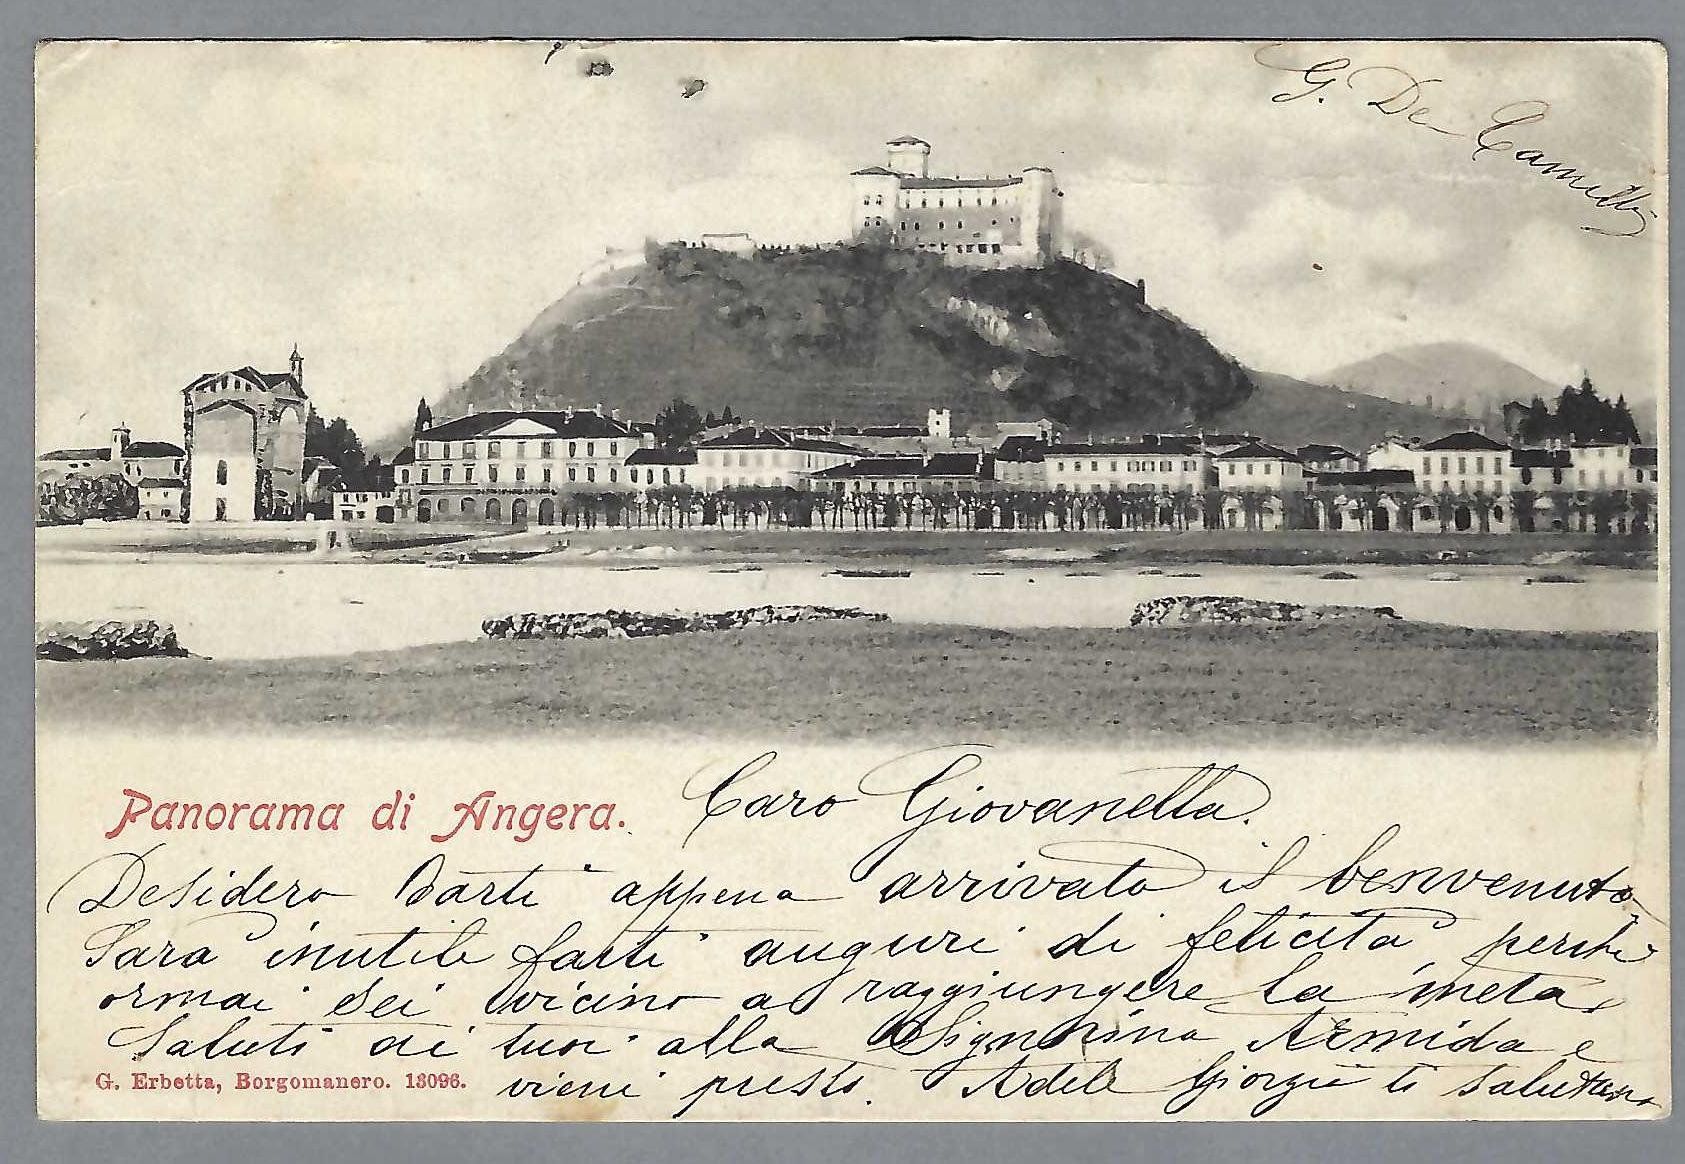 G. De Camilli
Panorama di Angera.
Caro Giovanella.
Desidero darti appena arrivato il benvenuto,
Sarà inutile farti auguri di felicità perché
ormai sei vicino a raggiungere la meta,
Saluti ai tuoi alla Signorina Armida e
vieni presto. Adele Giorgio ti salutano
G. Erbetta, Borgomanero. 13096.